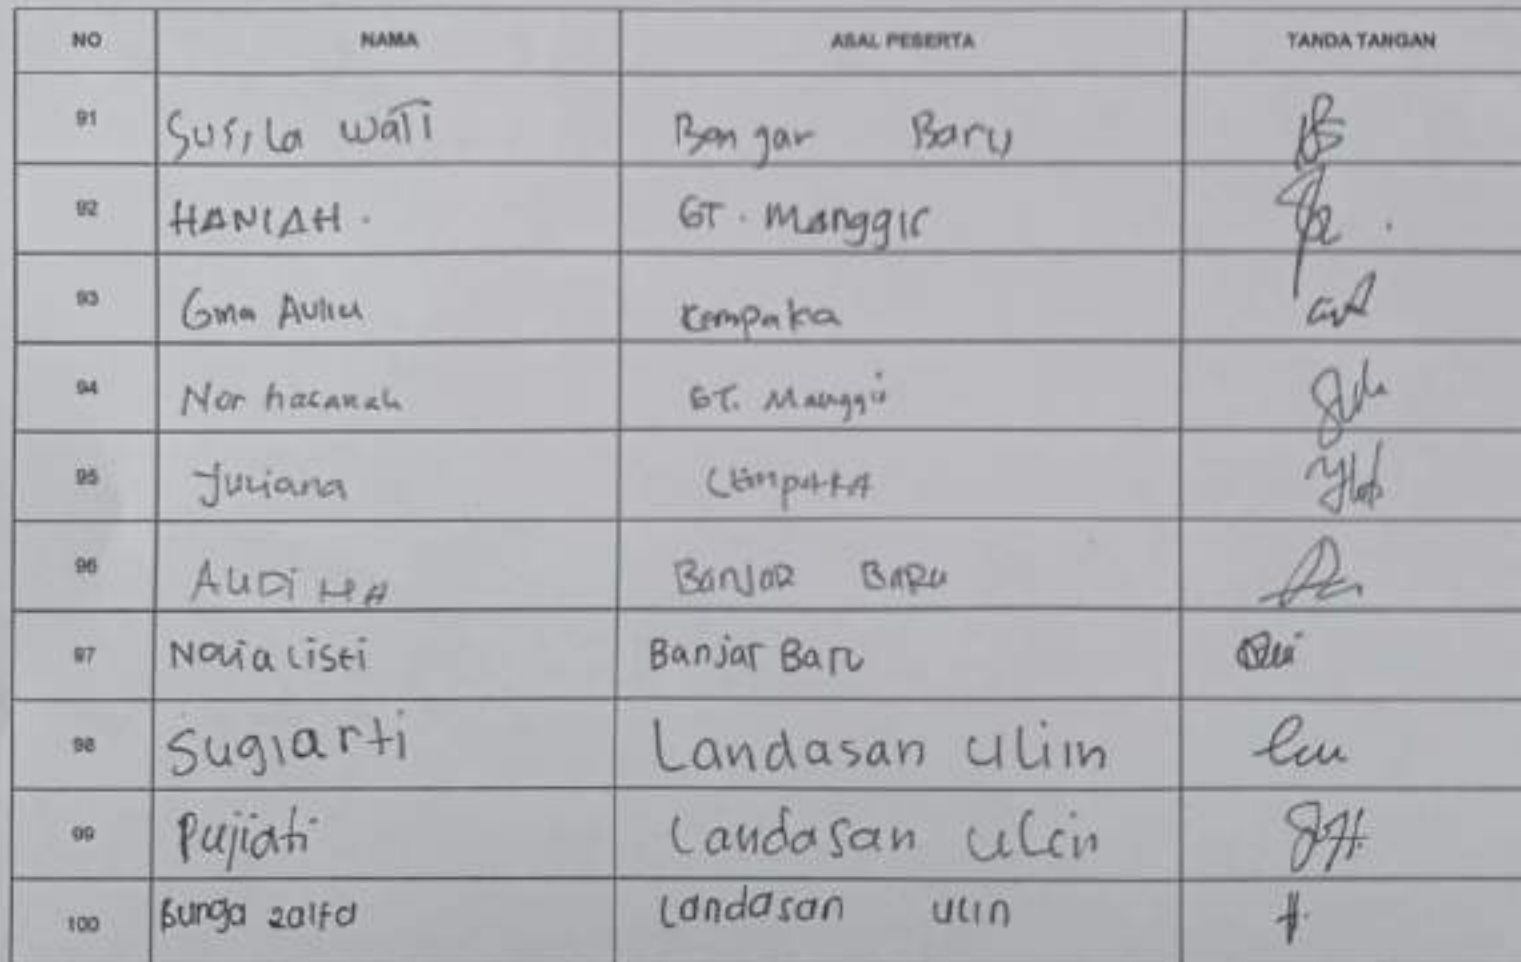 NO NAMA ASAL PESERTA TANDA TANGAN
91 Susila Wati Banjar Baru
92 HANIAH. GT. Manggis
93 Gma Aulia Cempaka
94 Nor hasanah GT. Manggis
95 Juliana Cempaka
96 AUDiNA BANJAR BARU
97 Novia Listi Banjar Baru
98 Sugiarti Landasan Ulin
99 Pujiati Landasan Ulin
100 Bunga zalfa Landasan Ulin